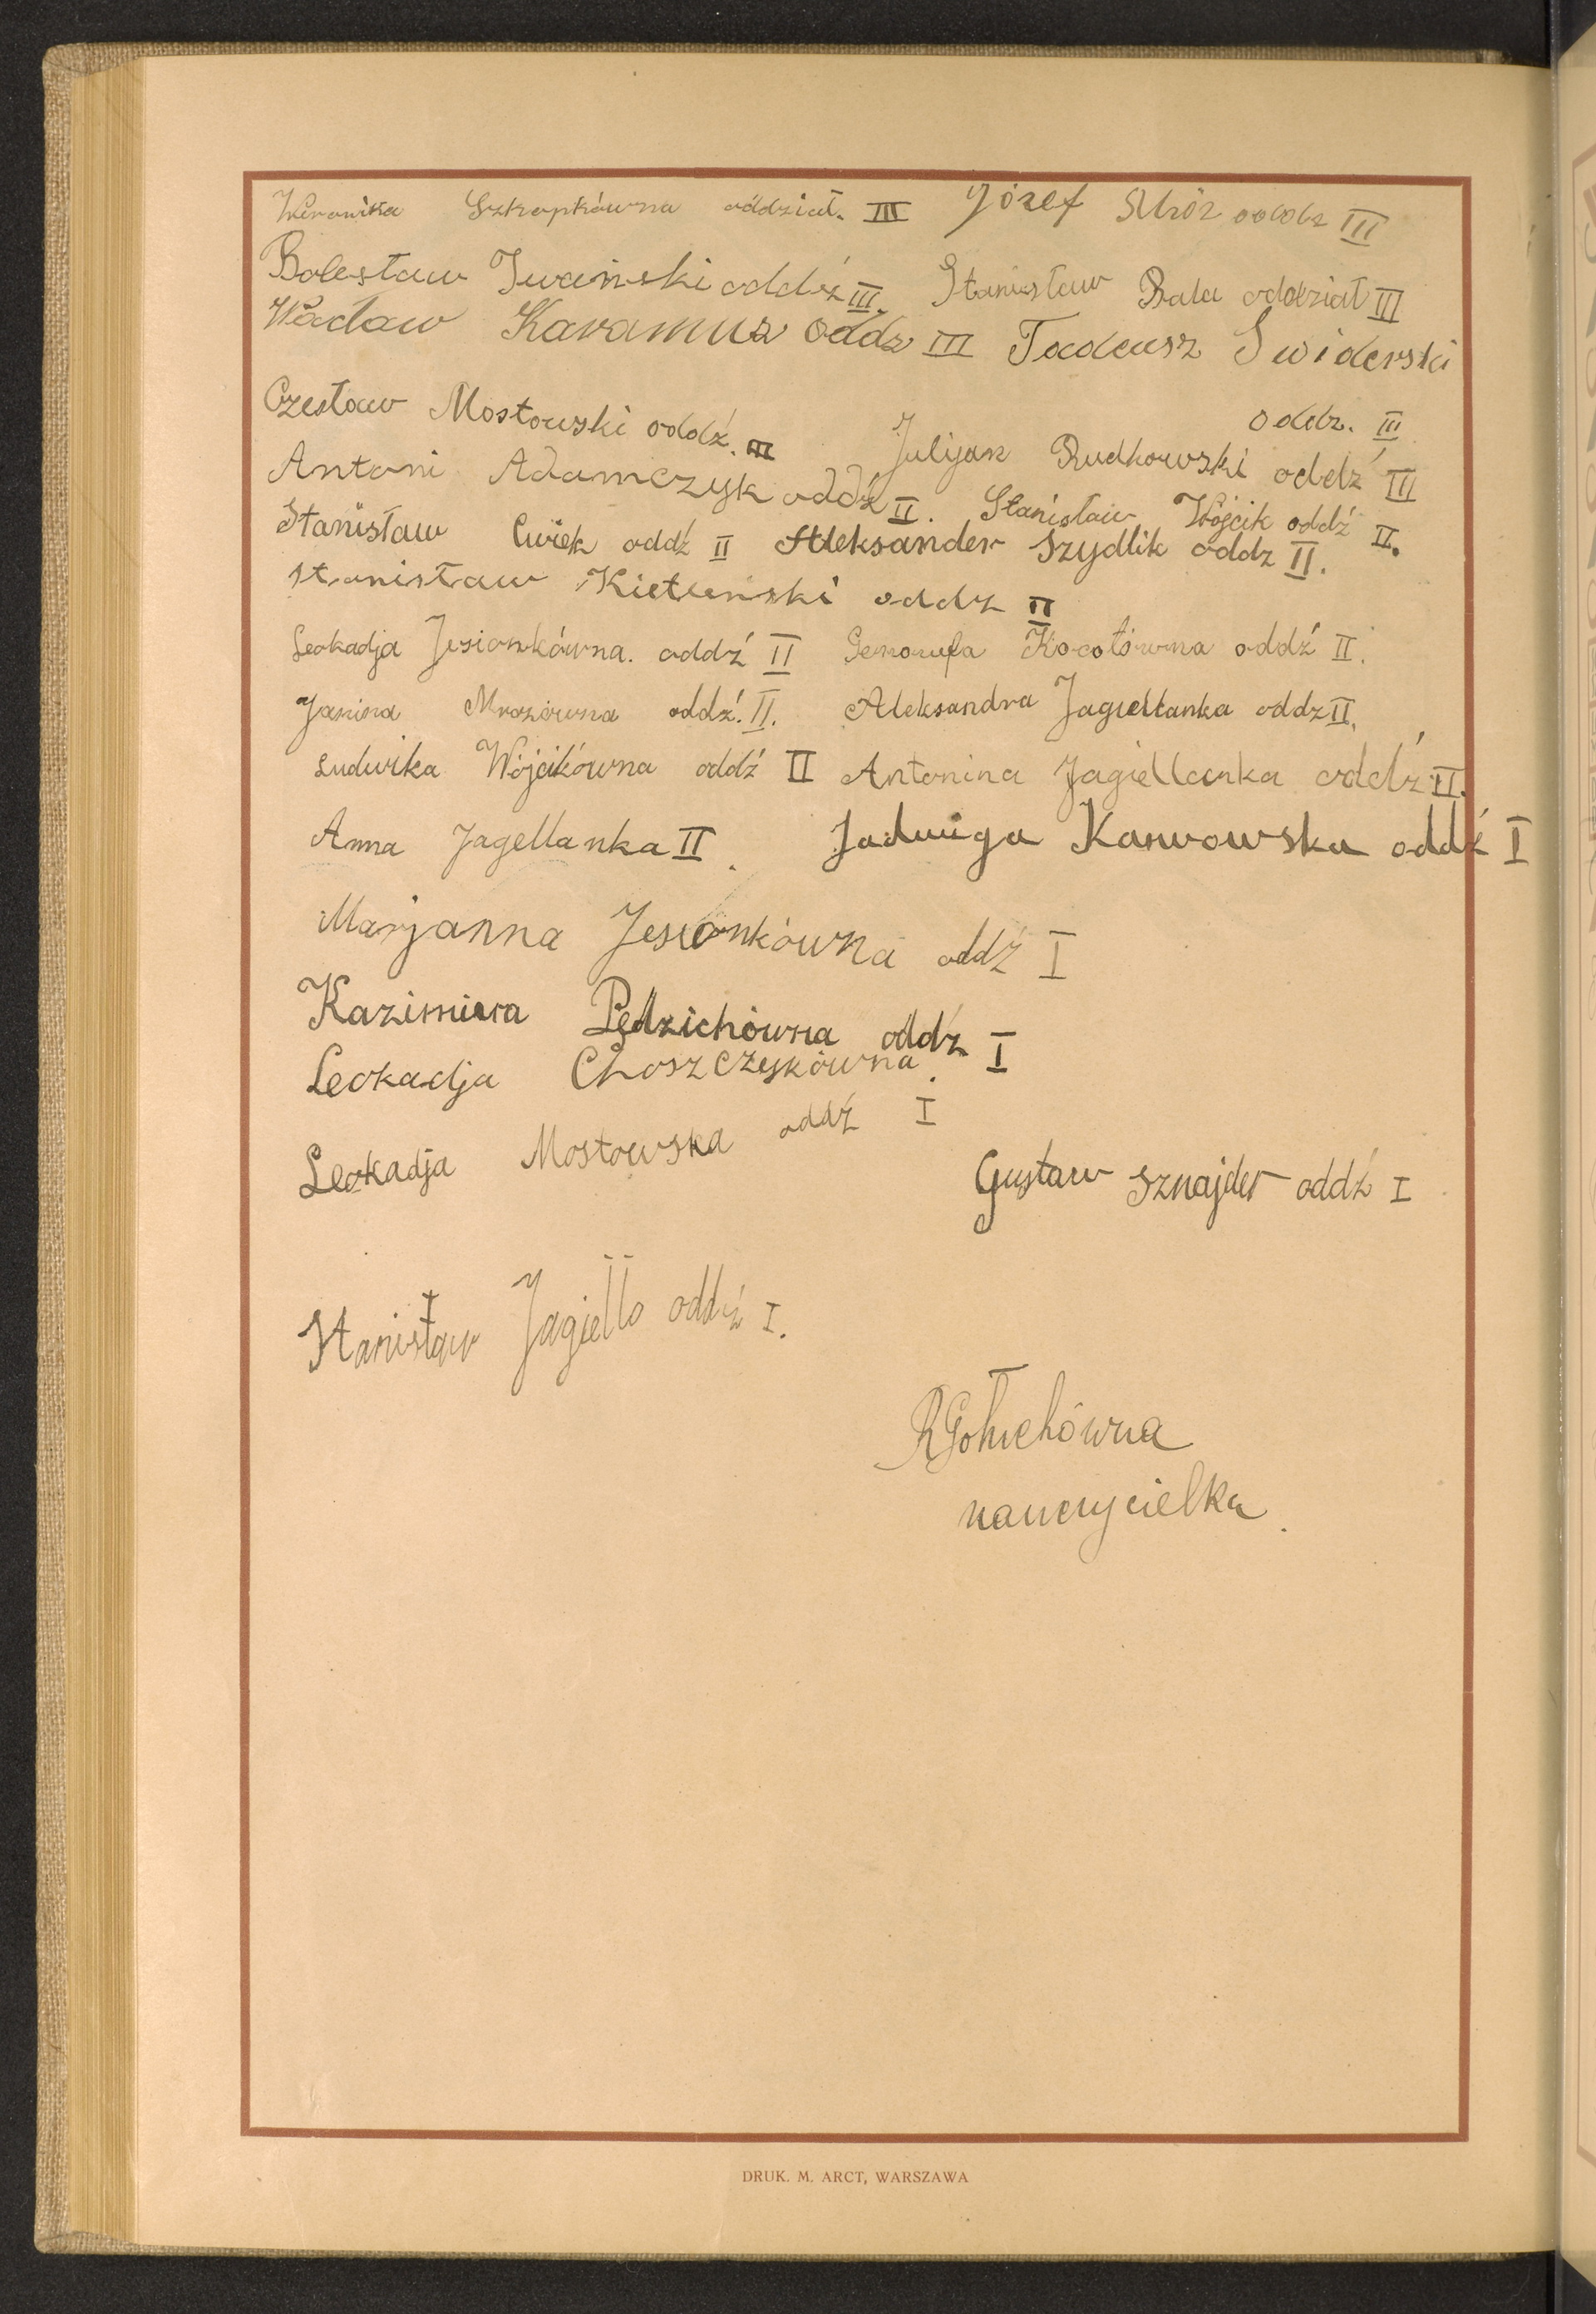 Weronika Szkopkówna oddział. III Józef Mróz oddz III
Bolesław Iwański oddź III. Stanisław Bala oddział III
Wacław Karamuz oddz III Tadeusz Swiderski
oddz. III
Czesław Mostowski oddź. III Julijan Rudkowski oddź III
Antoni Adamczyk oddź II. Stanisław Wójcik oddź II.
Stanisław Cwiek oddź II Aleksander Szydlik oddz II.
Stanisław oddz II
Leokadja Jesionkówna. oddź II Genowefa Kocotówna oddź II.
Janina Mrozówna oddź. II. Aleksandra Jagiełłanka oddz II.
Ludwika Wójcikówna oddź II Antonina Jagiellanka oddź II.
Anna Jagellanka II. Jadwiga Karwowska oddź I
Marjanna Jesionkówna oddź I
Kazimiera Pędzichówna oddz I
Leokadja Choszczykówna.
Leokadja Mostowska oddź I
Gustaw Sznajder oddź I
Stanisław Jagiello oddź I.
nauczycielka.
DRUK. M. ARCT, WARSZAWA